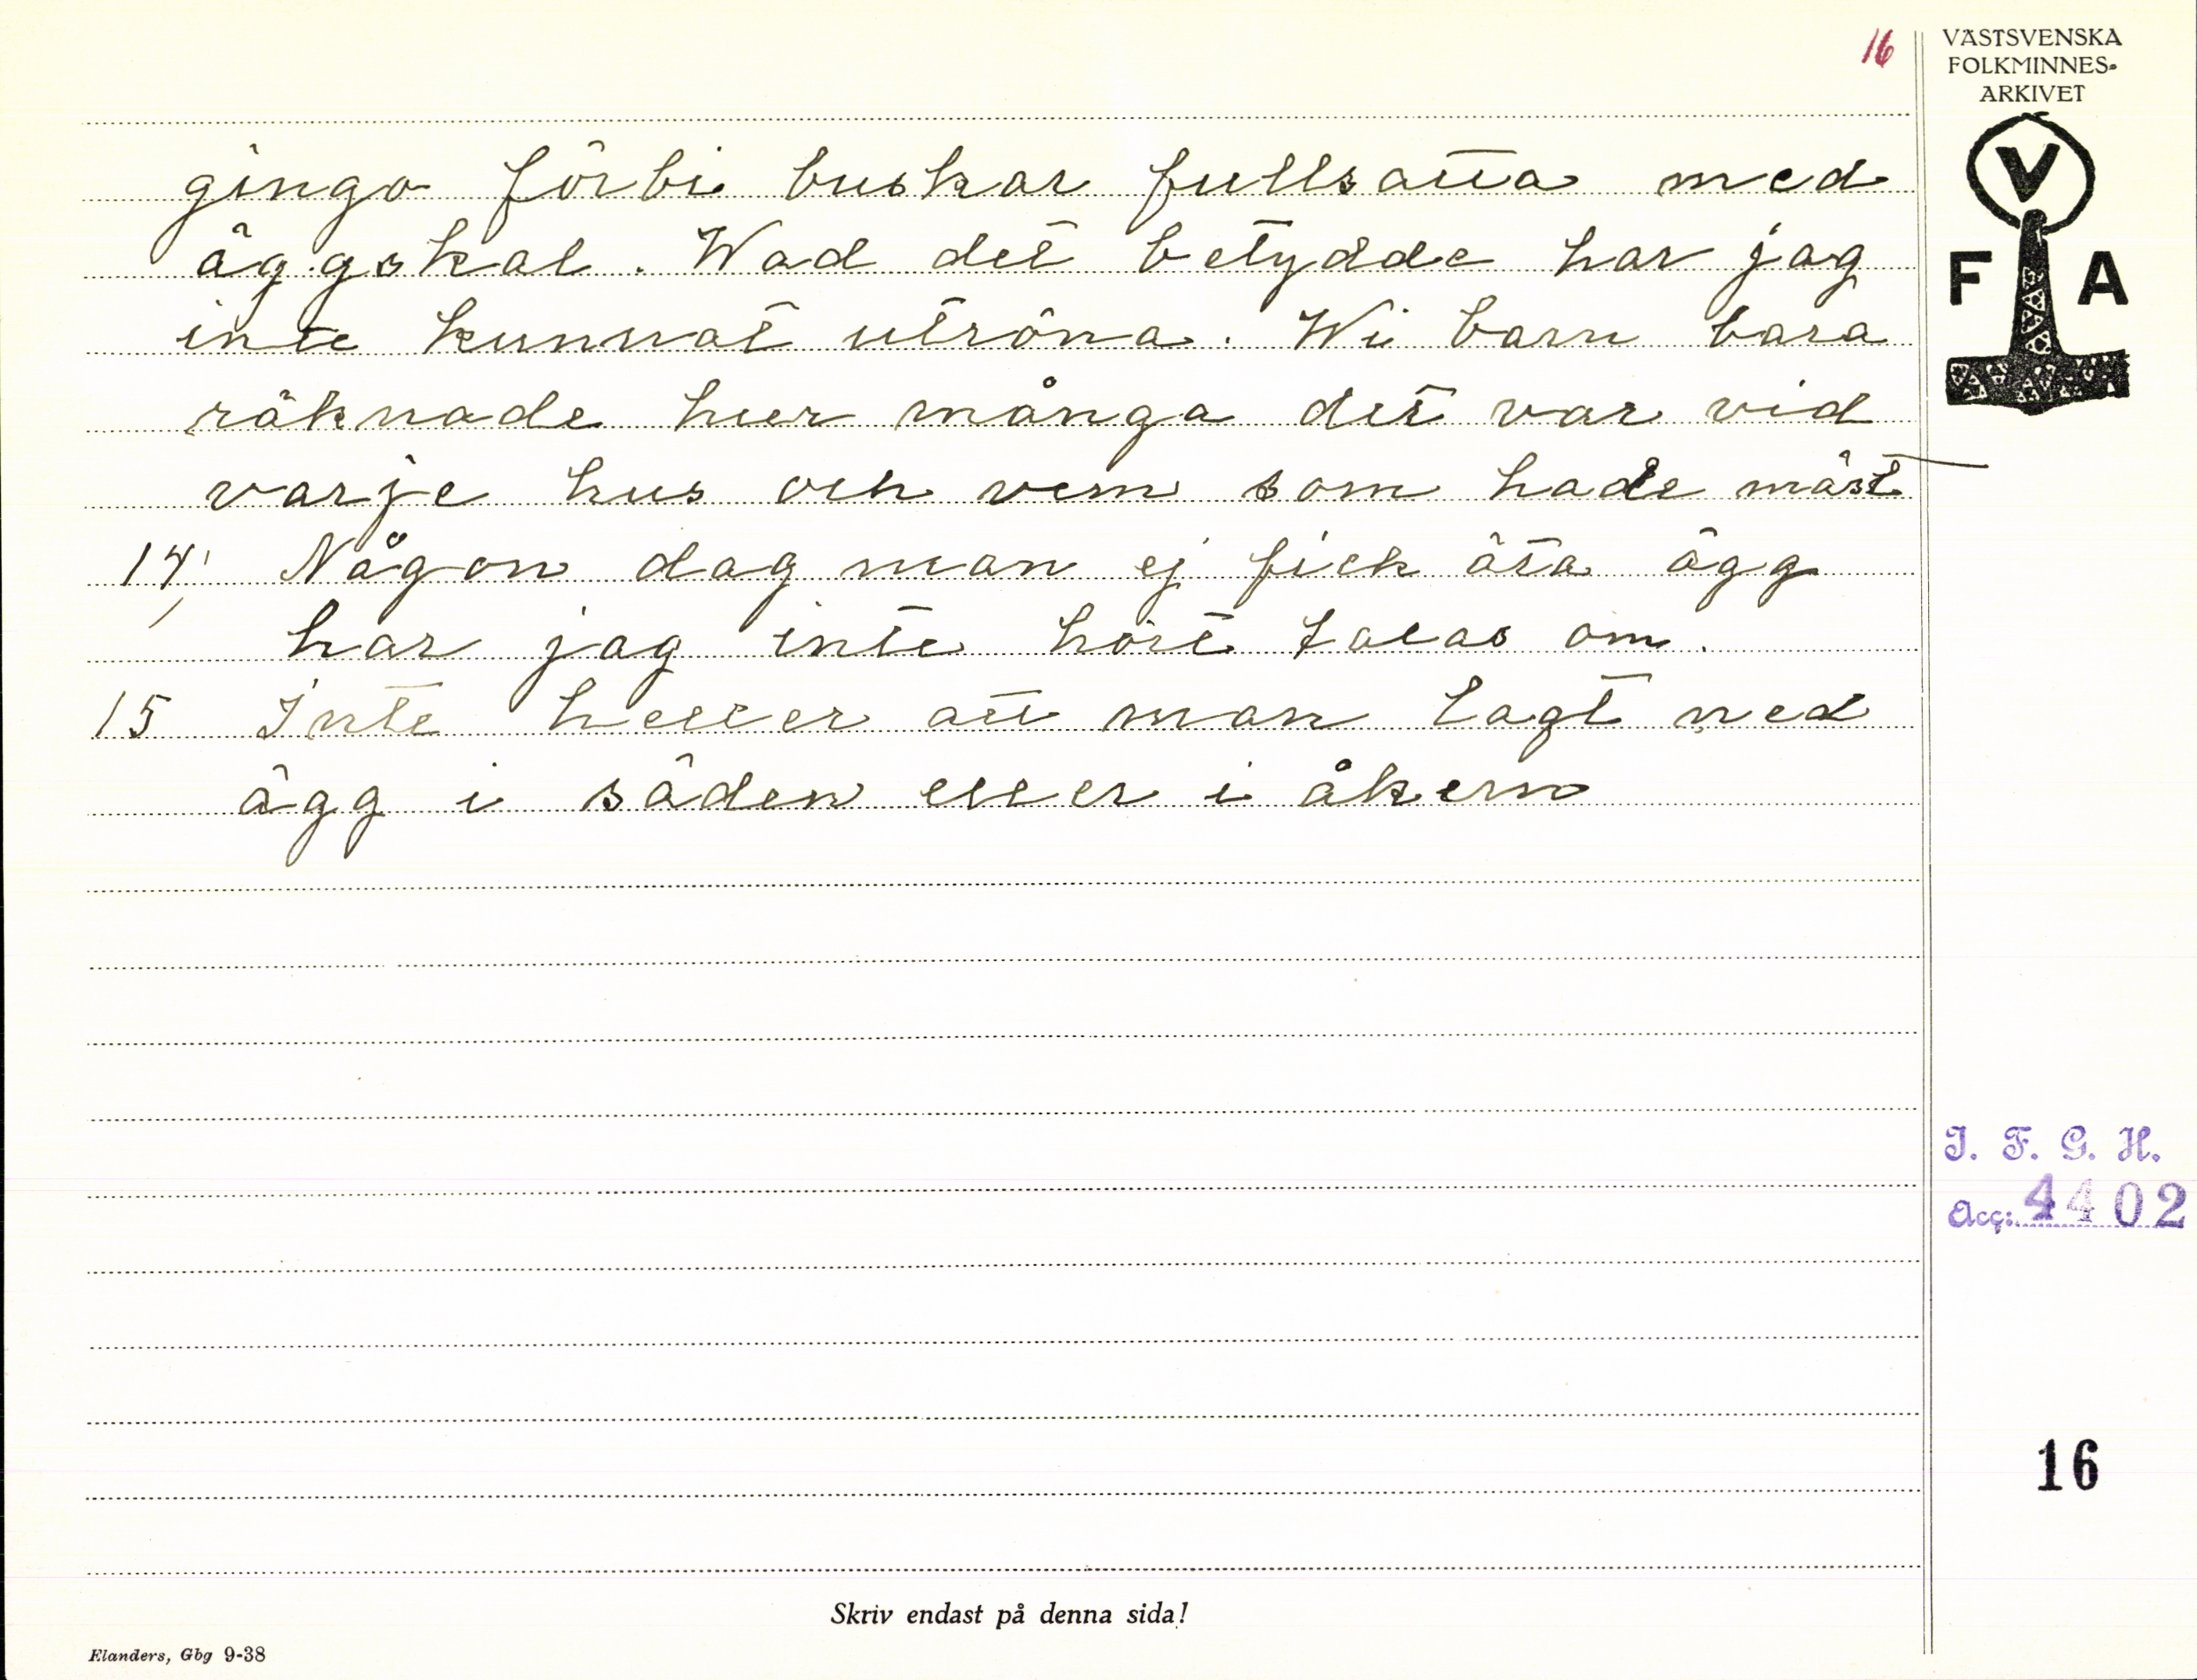 16
VÄSTSVENSKA
FOLKMINNES-
ARKIVET
V
F A
gingo förbi buskar fullsatta med
äggskal. Wad det betydde har jag
inte kunnat utröna. Wi barn bara
räknade hur många det var vid
varje hus och vem som hade mäst
14, Någon dag man ej fick äta ägg
har jag inte hört talas om.
15 Inte heller att man lagt ned
ägg i säden eller i åkern
I. F. G. H.
Acc: 4402
16
Skriv endast på denna sida!
Elanders, Gbg 9-38